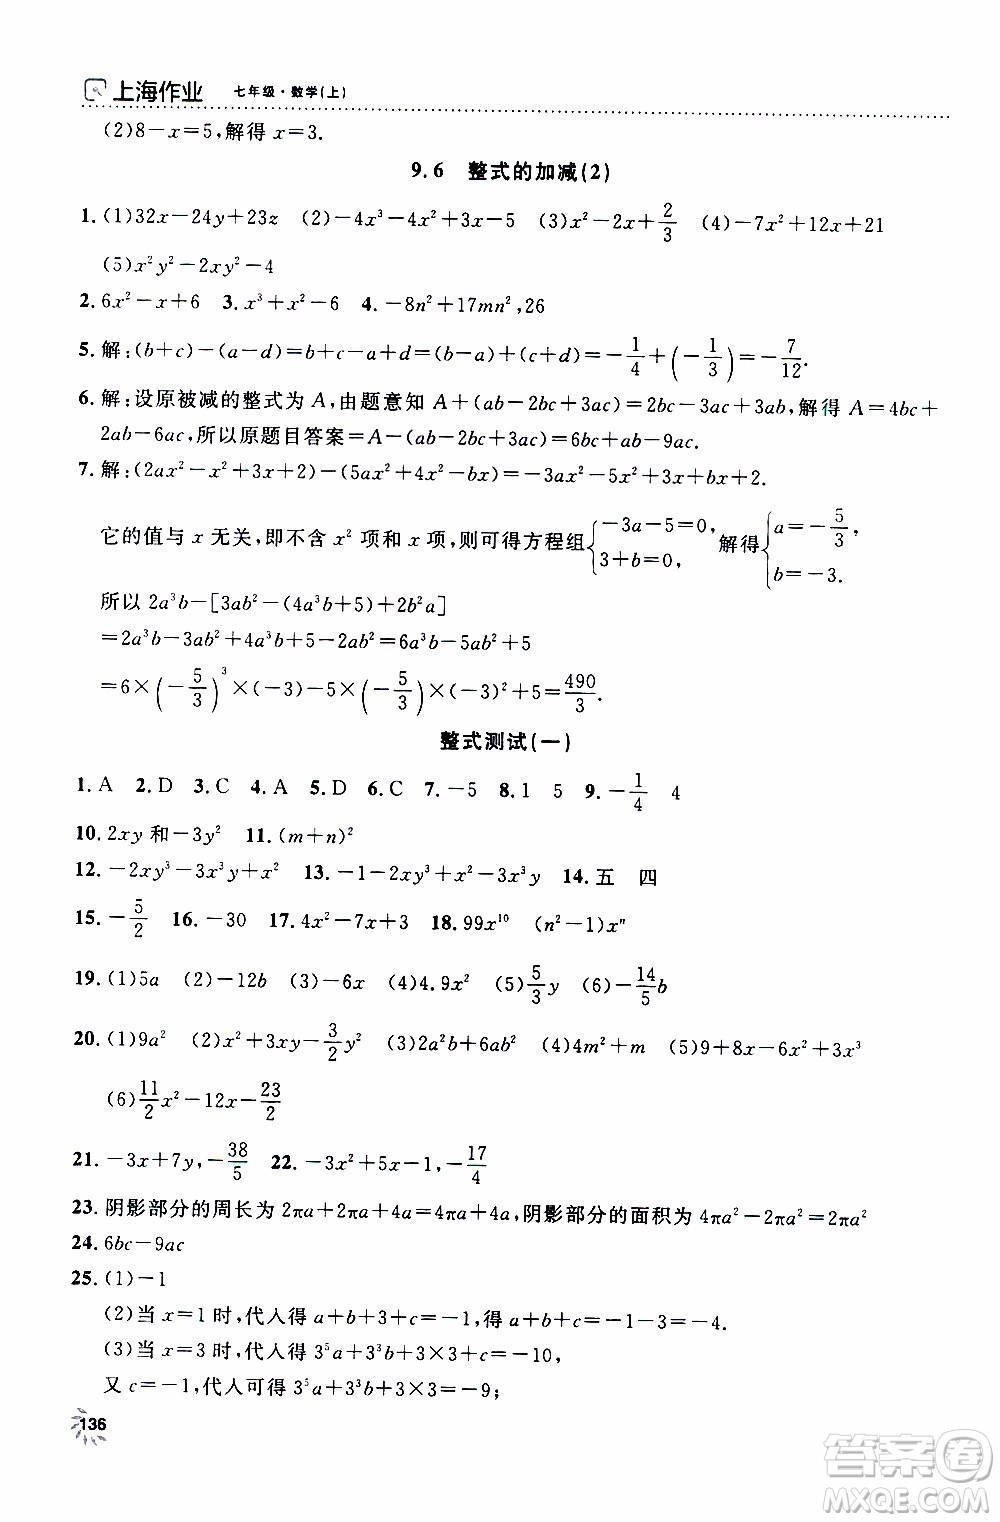 上海作业 七年级·数学(上)
(2)8－x＝5,解得 x＝3.
9.6 整式的加减(2)
1.(1)32x－24y＋23z (2)－4x³－4x²＋3x－5 (3)x²－2x＋2/3 (4)－7x²＋12x＋21
(5)x²y²－2xy²－4
2.6x²－x＋6 3.x³＋x²－6 4.－8n²＋17mn²,26
5.解:(b＋c)－(a－d)＝b＋c－a＋d＝(b－a)＋(c＋d)＝－1/4＋(－1/3)＝－7/12.
6.解:设原被减的整式为 A,由题意知 A＋(ab－2bc＋3ac)＝2bc－3ac＋3ab,解得 A＝4bc＋
2ab－6ac,所以原题目答案＝A－(ab－2bc＋3ac)＝6bc＋ab－9ac.
7.解:(2ax²－x²＋3x＋2)－(5ax²＋4x²－bx)＝－3ax²－5x²＋3x＋bx＋2.
它的值与 x 无关,即不含 x² 项和 x 项,则可得方程组{－3a－5＝0, 3＋b＝0, 解得{a＝－5/3, b＝－3.
所以 2a³b－[3ab²－(4a³b＋5)＋2b²a]
＝2a³b－3ab²＋4a³b＋5－2ab²＝6a³b－5ab²＋5
＝6×(－5/3)³×(－3)－5×(－5/3)×(－3)²＋5＝490/3.
整式测试(一)
1.A 2.D 3.C 4.A 5.D 6.C 7.－5 8.1 5 9.－1/4 4
10.2xy 和－3y² 11.(m＋n)²
12.－2xy³－3x³y＋x² 13.－1－2xy³＋x²－3x³y 14.五 四
15.－5/2 16.－30 17.4x²－7x＋3 18.99x¹⁰ (n²－1)xⁿ
19.(1)5a (2)－12b (3)－6x (4)4.9x² (5)5/3y (6)－14/5b
20.(1)9a² (2)x²＋3xy－3/2y² (3)2a²b＋6ab² (4)4m²＋m (5)9＋8x－6x²＋3x³
(6)11/2x²－12x－23/2
21.－3x＋7y,－38/5 22.－3x²＋5x－1,－17/4
23.阴影部分的周长为 2πa＋2πa＋4a＝4πa＋4a,阴影部分的面积为 4πa²－2πa²＝2πa²
24.6bc－9ac
25.(1)－1
(2)当 x＝1 时,代人得 a＋b＋3＋c＝－1,得 a＋b＋c＝－1－3＝－4.
(3)当 x＝3 时,代人得 3⁵a＋3³b＋3×3＋c＝－10,
又 c＝－1,代人可得 3⁵a＋3³b＋3×3＝－9;
136
答案圈
MXQE.COM